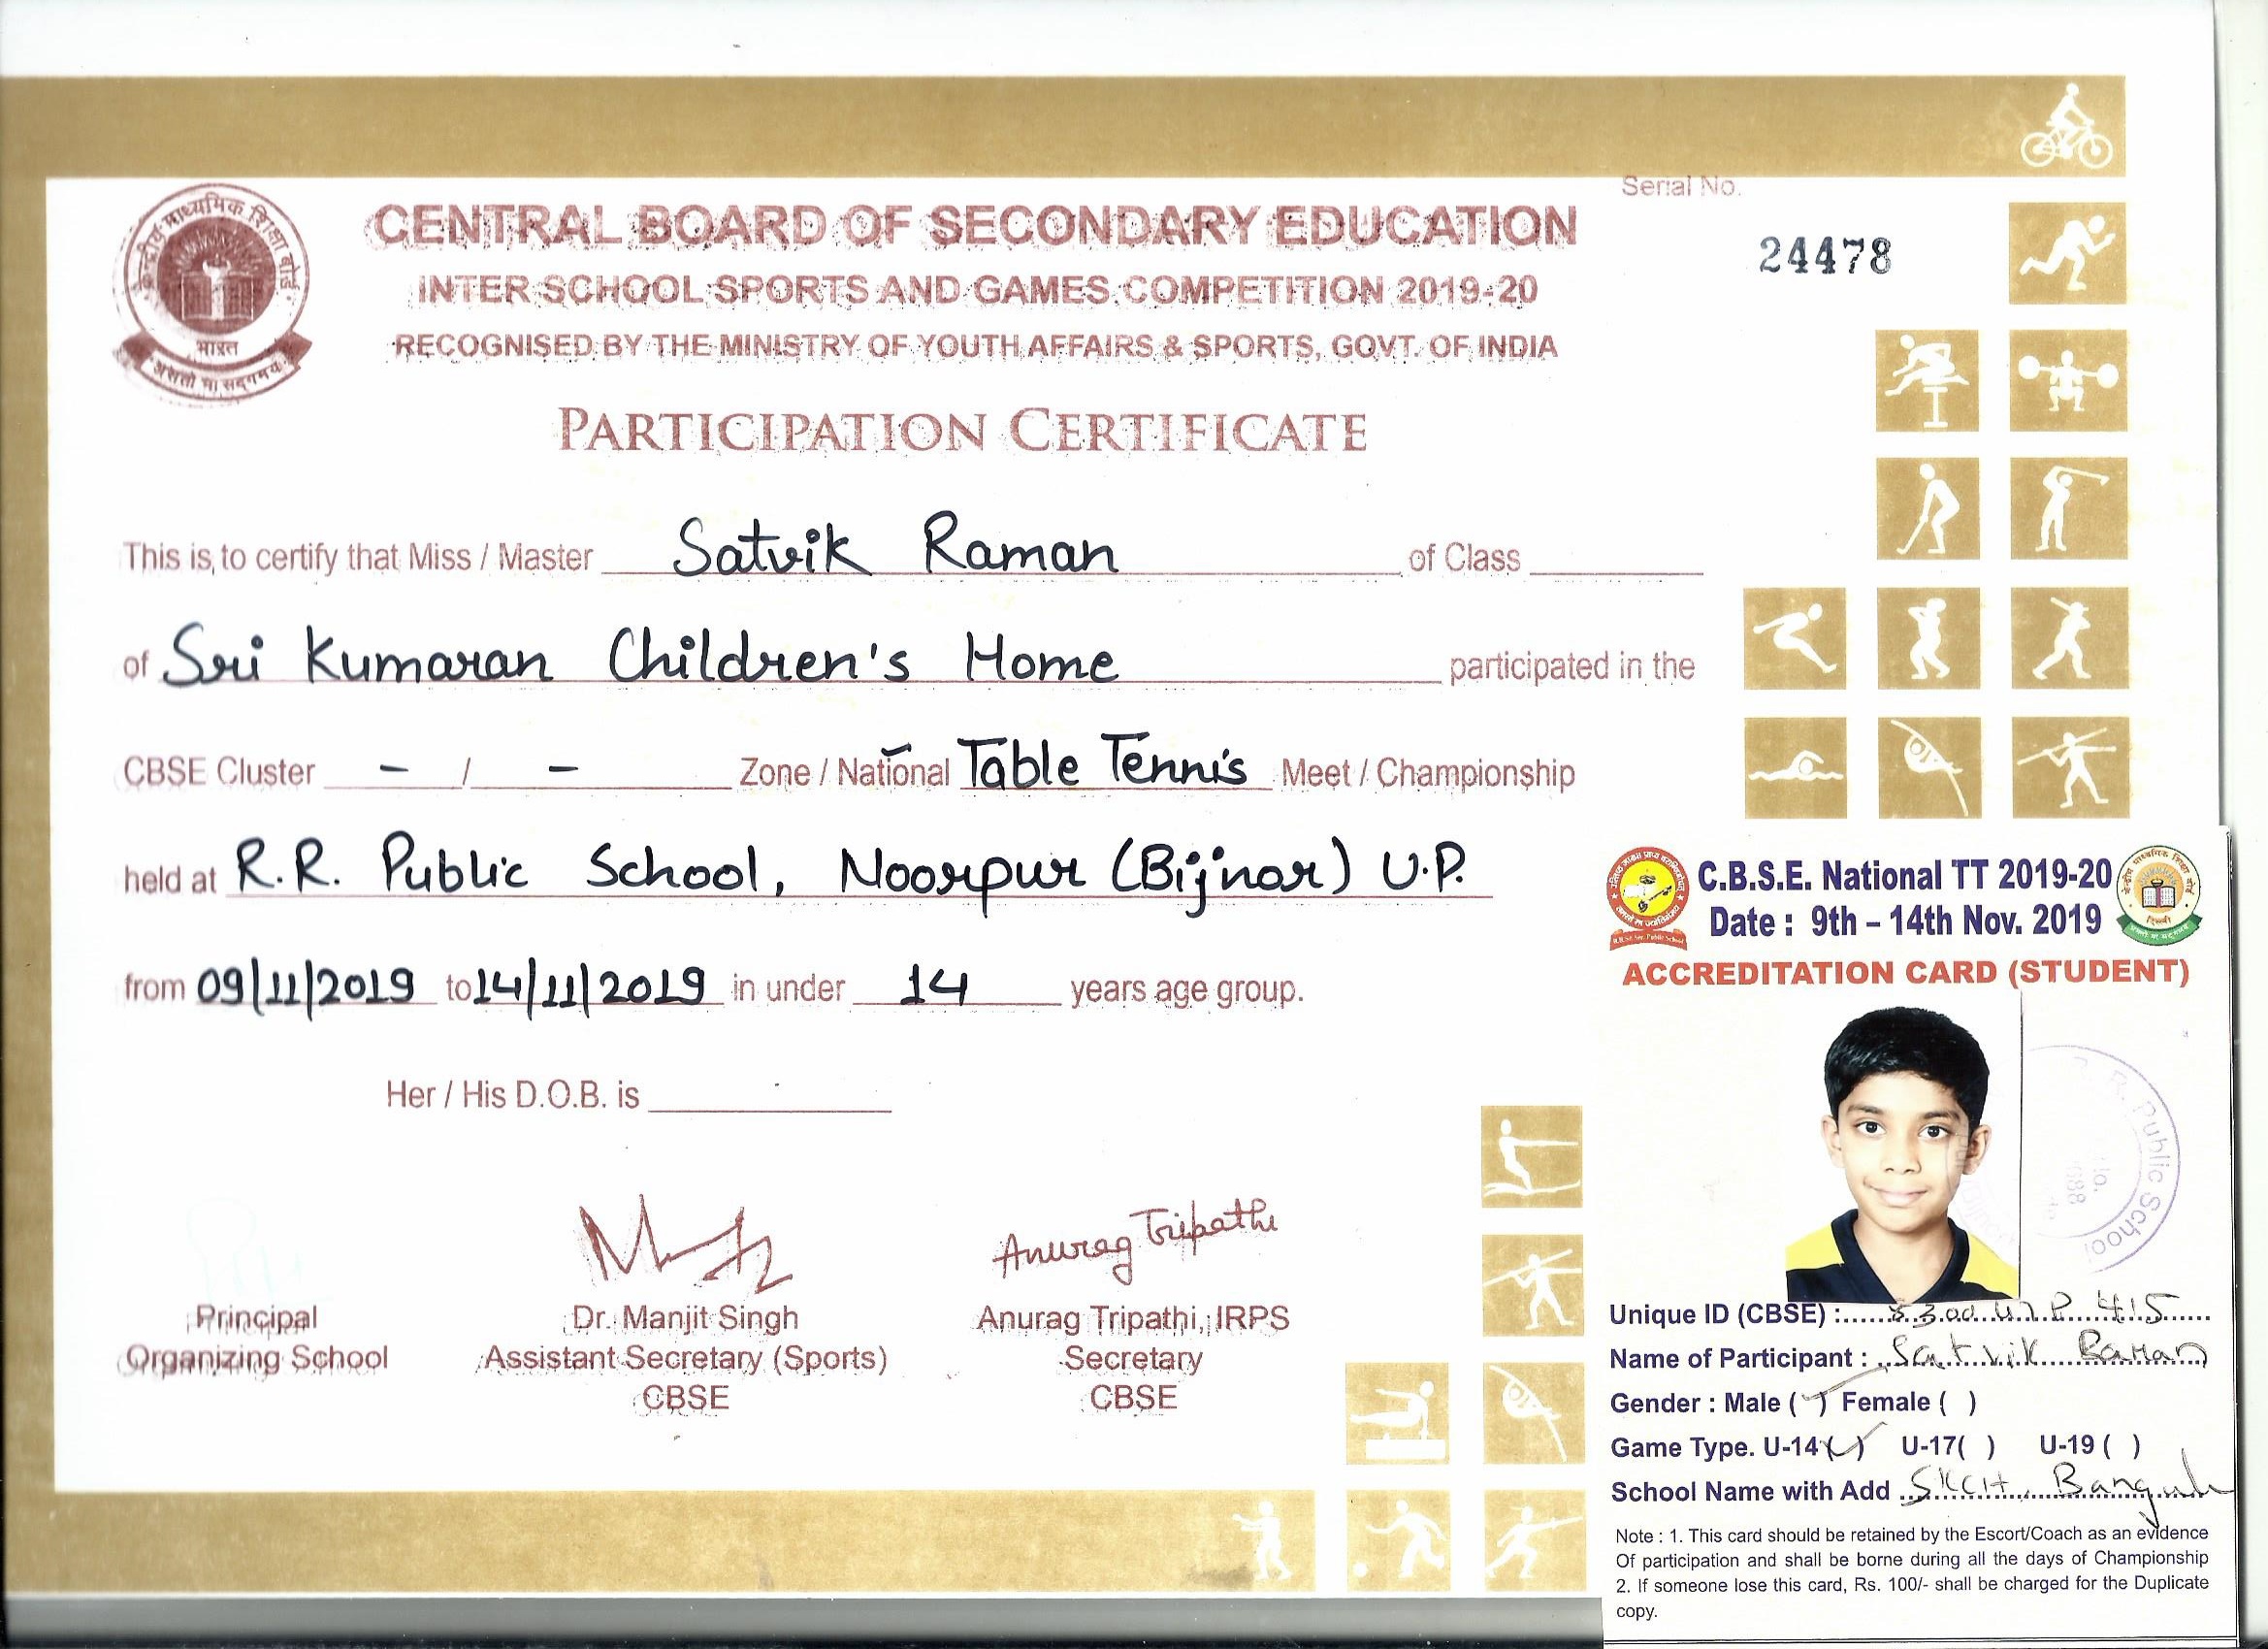 केन्द्रीय माध्यमिक शिक्षा बोर्ड
भारत
असतो मा सद्गमय
CENTRAL BOARD OF SECONDARY EDUCATION
INTER SCHOOL SPORTS AND GAMES COMPETITION 2019-20
RECOGNISED BY THE MINISTRY OF YOUTH AFFAIRS & SPORTS, GOVT. OF INDIA
Serial No.
24478
PARTICIPATION CERTIFICATE
This is to certify that Miss / Master Satvik Raman of Class
of Sri Kumaran Children's Home participated in the
CBSE Cluster - / - Zone / National Table Tennis Meet / Championship
held at R.R. Public School, Noorpur (Bijnor) U.P.
from 09/11/2019 to 14/11/2019 in under 14 years age group.
Her / His D.O.B. is
Anurag Tripathi
Principal
Organizing School
Dr. Manjit Singh
Assistant Secretary (Sports)
CBSE
Anurag Tripathi, IRPS
Secretary
CBSE
C.B.S.E. National TT 2019-20
Date : 9th – 14th Nov. 2019
ACCREDITATION CARD (STUDENT)
R. Public School
Unique ID (CBSE) :
Name of Participant : Satvik Raman
Gender : Male ( ) Female ( )
Game Type. U-14 ( ) U-17( ) U-19 ( )
School Name with Add SKCH,
Note : 1. This card should be retained by the Escort/Coach as an evidence
Of participation and shall be borne during all the days of Championship
2. If someone lose this card, Rs. 100/- shall be charged for the Duplicate
copy.